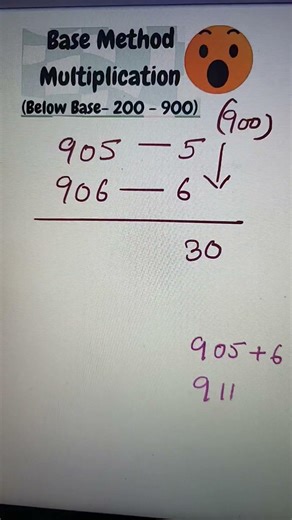 Base Method
Multiplication
(Below Base- 200 - 900)
(900)
905 — 5
906 — 6
30
905+6
911